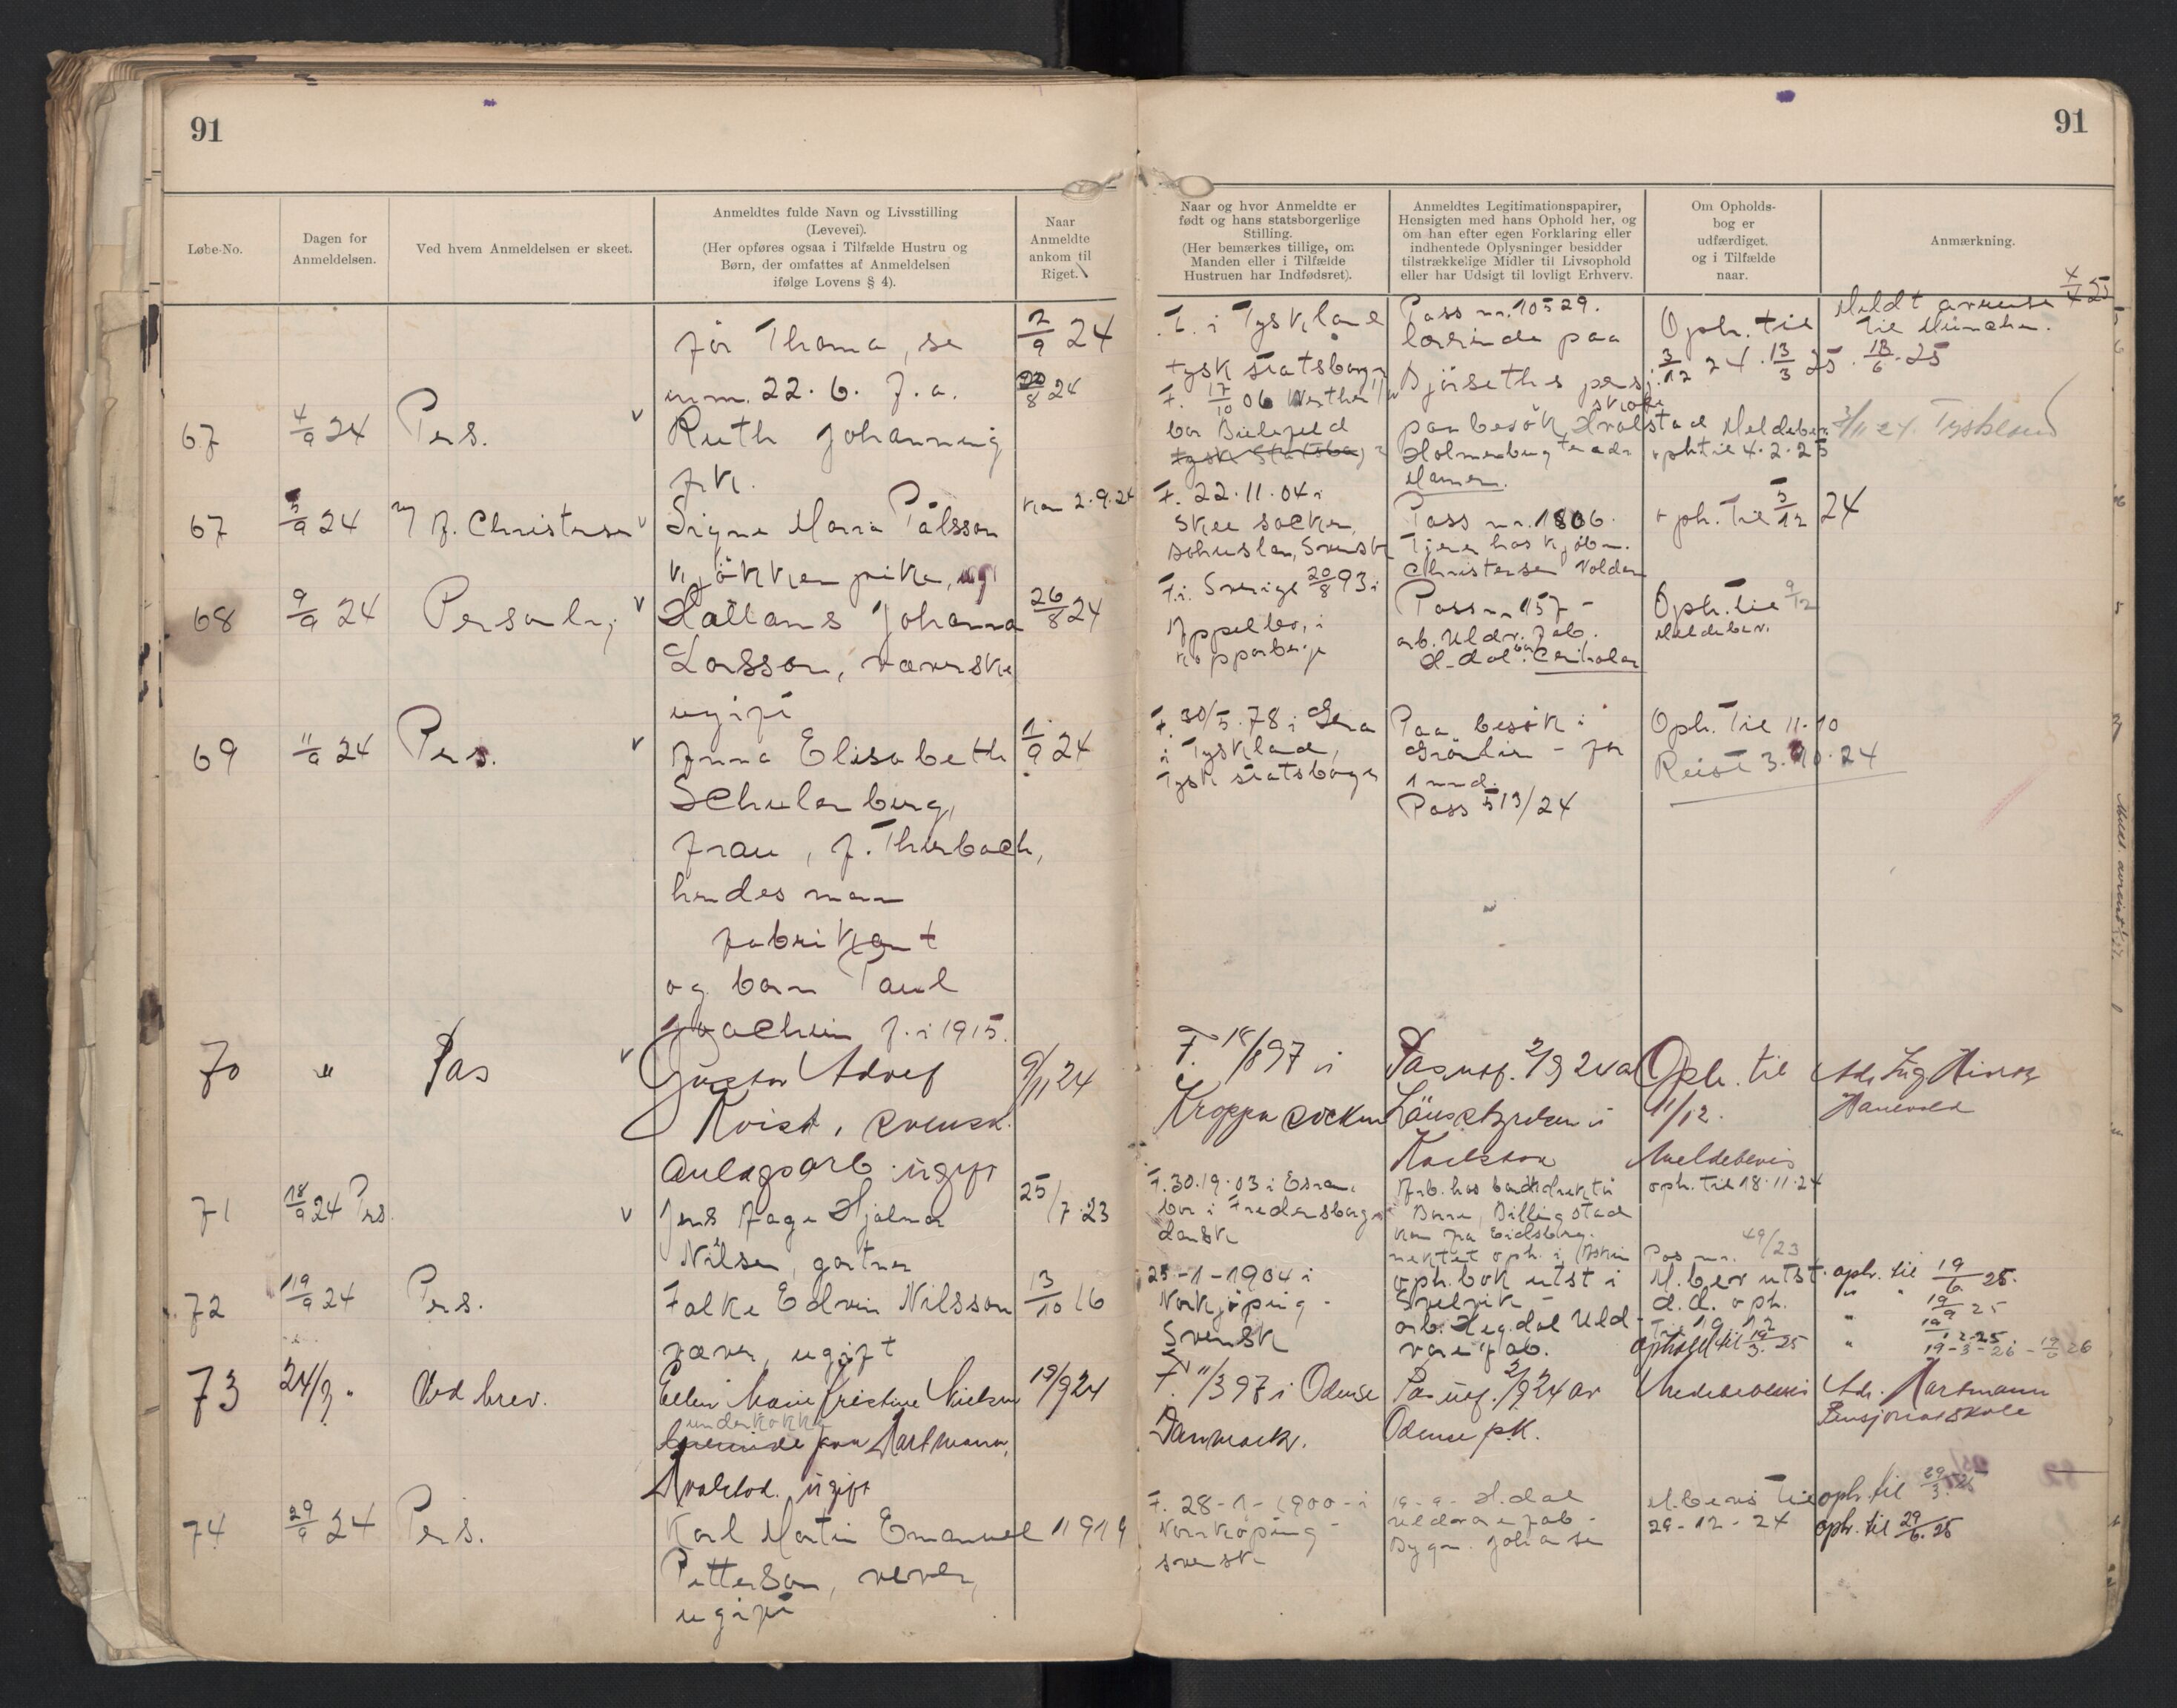 91
91
Løbe-No.
Dagen for
Anmeldelsen.
Ved hvem Anmeldelsen er skeet.
Anmeldtes fulde Navn og Livsstilling
(Levevei).
(Her opføres ogsaa i Tilfælde Hustru og
Børn, der omfattes af Anmeldelsen
ifølge Lovens § 4).
Naar
Anmeldte
ankom til
Riget.
Naar og hvor Anmeldte er
født og hans statsborgerlige
Stilling.
(Her bemærkes tillige, om
Manden eller i Tilfælde
Hustruen har Indfødsret).
Anmeldtes Legitimationspapirer,
Hensigten med hans Ophold her, og
om han efter egen Forklaring eller
indhentede Oplysninger besidder
tilstrækkelige Midler til Livsophold
eller har Udsigt til lovligt Erhverv.
Om Opholds-
bog er
udfærdiget,
og i Tilfælde
naar.
Anmærkning.
før Thoma, se
num. 22. 6. f. a.
2/9 24
F. i Tyskland
tysk statsborger
Pass nr. 10529.
lærerinde paa
Bjørseths pensj.
skole
Oph. til
3/12 24. 13/3 25. 13/6 25
Meldt avreise 4/4 25
til München.
67
4/9 24
Pers.
Ruth Johanning
frk.
20/8 24
F. 17/10 06
bor Bielefeld
tysk statsborger
paa besøk Hvalstad
Meldebev.
oph til 4.2.25
3/11 24. Tyskland
67
5/9 24
J. Christensen
Signe Maria Pålsson
kjøkkenpike, ug
kom 2.9.24
F. 22.11.04 i
Skee socken,
Bohuslän, Svensk
Pass nr. 1806.
Tjener hos kjøbm.
Christensen Volden
oph. til 5/12 24
68
9/9 24
Personlig
Johanna
Larsson, væverske
ugift
26/8 24
F. i Sverige 20/8 93 i
Äppelbo, i
Kopparberge
Pass nr 157 -
arb. Uldv. fab.
Oph. til 9/12
Meldebev.
69
11/9 24
Pers.
Anna Elisabeth
Schulenburg,
frau, f. Thurbach,
hendes man
fabrikant
og barn Paul
Joachim f. i 1915.
1/9 24
F. 30/5.78 i Gera
i Tyskland,
Tysk statsborger
Paa besøk i
for
1 mnd.
Pass 513/24
Oph. til 11.10
Reist 3.10.24
70
"
Pas
Gustav Adolf
Kvist, svensk.
anlægsarb. ugift
9/11 24
F. 18/8 97 i
Kroppa socken
Pas utf. 2/9 24 av
Länsstyrelsen i
Karlstad
Oph. til
11/12.
Meldebevis
Adr. Ing.
Hanevold
71
18/9 24
Pers.
Jens Aage Hjalmar
Nilsen, gartner
25/7 23
F. 30.19.03 i Esra.
bor i Fredensborg
dansk
Arb. hos bankdirektør
Billingstad
kom fra Eidsberg.
nektet oph. i Askim
oph. til 18.11.24
Pas nr. 49/23
72
19/9 24
Pers.
Falke Edvin Nilsson
væver, ugift
13/10 16
25-1-1904 i
Norkjøping -
Svensk
oph. bok utst i
Svelvik -
arb. Heg.dal Uld-
varefab.
M.bev utst.
d.d. oph.
til 19.12
ophold til 19/3.25
oph. til 19/6 25.
" " 19/9 25
" 19/12-25
" 19-3-26 - 19/6 26
73
24/9 "
Ved brev.
Ellen Marie Kristine Nielsen
underkokke
lærerinde paa Hartmann,
Hvalstad. ugift
19/9 24
F. 11/3 97 i Odense
Danmark.
Pas utf. 2/9 24 av
Odense pk.
Meldebevis
Adr. Hartmann
Pensjonatskole
74
29/9 24
Pers.
Karl Martin Emanuel
Petterson, vever,
ugift
1919
F. 28-1-1900 - i
Norrköping -
svensk
H.dal
uldvarefab -
Bygn. Johansen
M.bevis til
29-12-24
oph. til 29/3 25
oph. til 29/6.25